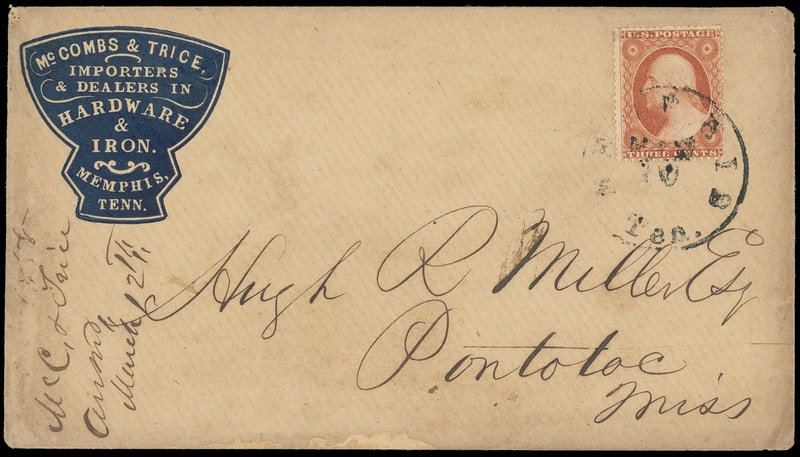 McCOMBS & TRICE,
IMPORTERS
& DEALERS IN
HARDWARE
&
IRON.
MEMPHIS,
TENN.
U.S. POSTAGE
THREE CENTS
Ten.
Hugh R Miller Esq
Pontotoc
Miss
McC, & Trice
March